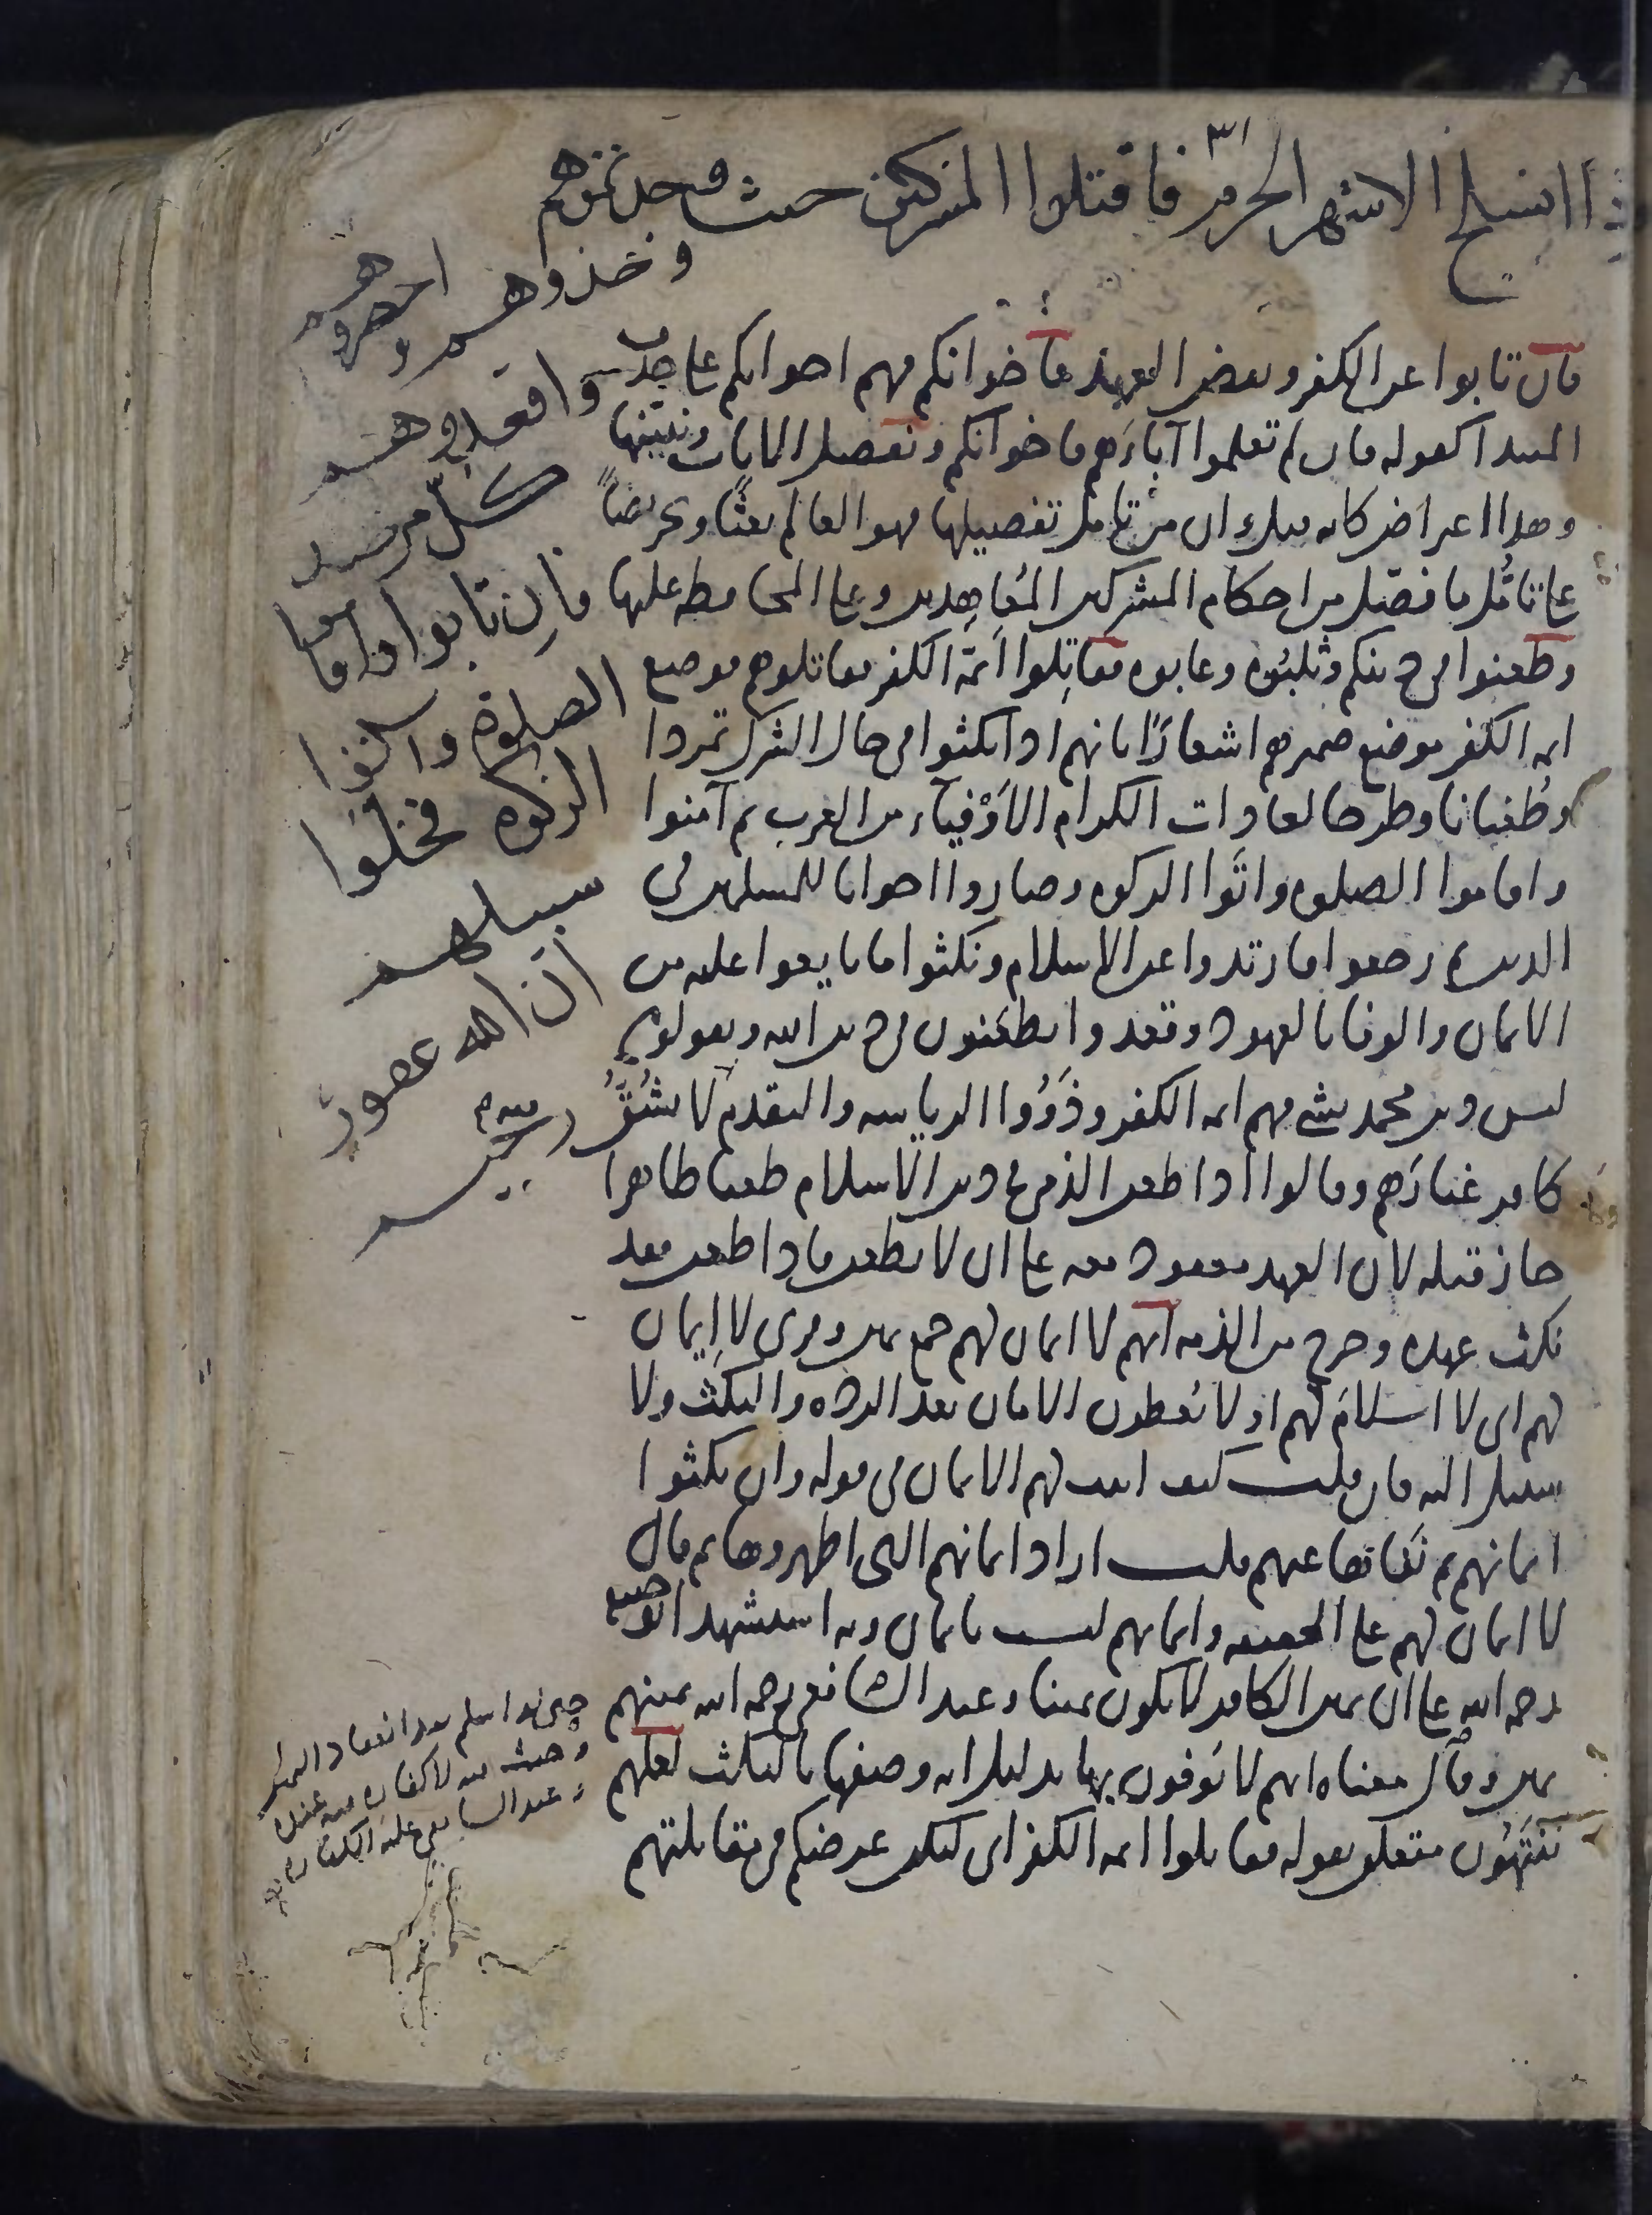 فاذا انسلخ الاشهر الحرم فاقتلوا المشركين حيث وجدتموهم
وخذوهم واحصروهم
واقعدوا لهم
كل مرصد
فان تابوا واقاموا
الصلوة وآتوا
الزكوة فخلوا
سبيلهم
ان الله غفور
رحيم
فان تابوا عن الكفر ونقض العهد فاخوانكم فهم اخوانكم على حذف
المبتدا كقوله فان لم تعلموا آباءهم فاخوانكم ونفصل الآيات ونبينها
وهذا اعتراض كانه قيل وان من تامل تفصيلها فهو العالم بعثا وتحريضا
على تامل ما فصل من احكام المشركين المعاهدين وعلى المحافظة عليها
وطعنوا في دينكم وثلبوه وعابوه فقاتلوا ائمة الكفر فقاتلوهم فوضع
ائمة الكفر موضع ضميرهم اشعارا بانهم اذا نكثوا في حال الشرك تمردا
وطغيانا وطرحا لعادات الكرام الاوفياء من العرب ثم آمنوا
واقاموا الصلوة واتوا الزكوة وصاروا اخوانا للمسلمين في
الدين ثم رجعوا فارتدوا عن الاسلام ونكثوا ما بايعوا عليه من
الايمان والوفا بالعهود وقعدوا يطعنون في دين الله ويقولون
ليس دين محمد بشي فهم ائمة الكفر وذوو الرياسة والتقدم لا يشق
كافر غبارهم وقالوا اذا طعن الذمي في دين الاسلام طعنا ظاهرا
جاز قتله لان العهد معقود معه على ان لا يطعن فاذا طعن فقد
نكث عهده وخرج من الذمة انهم لا ايمان لهم جمع يمين وقرى لا إيمان
لهم اى لا اسلام لهم او لا يعطون الامان بعد الردة والنكث ولا
سبيل اليه فان قلت كيف اثبت لهم الايمان في قوله وان نكثوا
ايمانهم ثم نفاها عنهم قلت اراد ايمانهم التي اظهروها ثم قال
لا ايمان لهم على الحقيقة وايمانهم ليست بايمان وبه استشهد ابو حنيفة
رحمه الله على ان يمين الكافر لا يكون يمينا وعند الشافعي رحمه الله يمينهم
يمين وقال معناه انهم لا يوفون بها بدليل انه وصفها بالنكث لعلهم
ينتهون متعلق بقوله فقاتلوا ائمة الكفر اى ليكن غرضكم في مقاتلتهم
حتى لو اسلم بعد انعقاد اليمين
وحنث فيه لا كفارة فيه عنده
وعند الشافعي عليه الكفارة